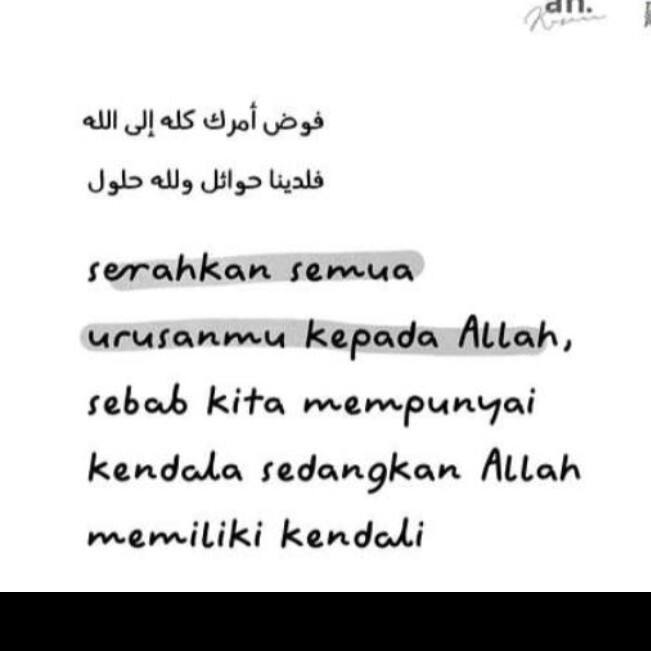 an.
فوض أمرك كله إلى الله
فلدينا حوائل ولله حلول
serahkan semua
urusanmu kepada Allah,
sebab kita mempunyai
kendala sedangkan Allah
memiliki kendali